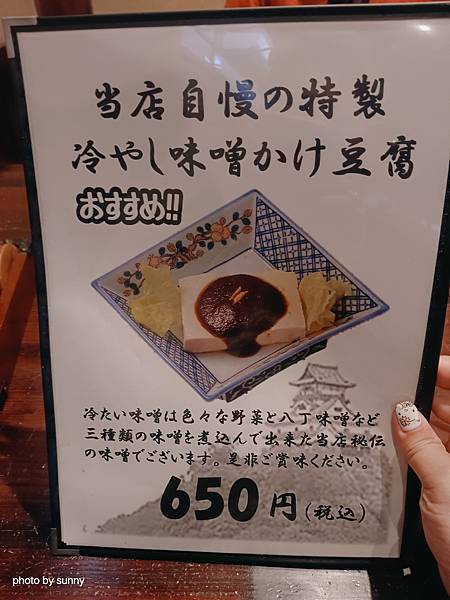 当店自慢の特製
冷やし味噌かけ豆腐
おすすめ!!
冷たい味噌は色々な野菜と八丁味噌など
三種類の味噌を煮込んで出来た当店秘伝
の味噌でございます。是非ご賞味ください。
650円(税込)
photo by sunny